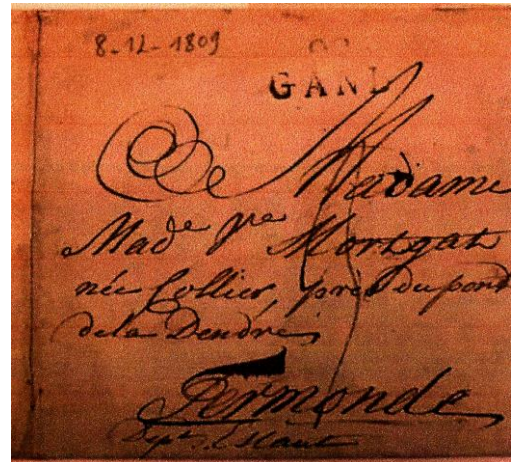 8-12-1809
GAND
A Madame
Mad.e V.ve Mortgat
née Collier, près du pont
de la Dendre
Termonde
Dep.t L'Escaut